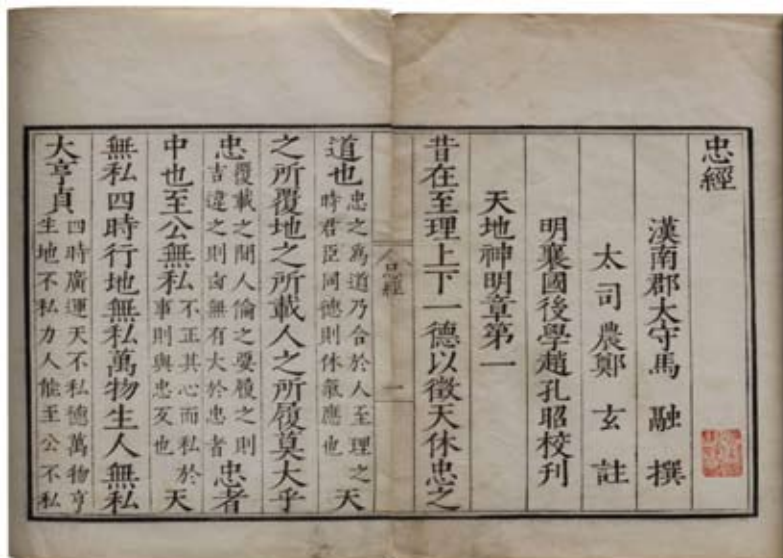 忠經
漢南郡太守馬融撰
太司農鄭玄註
明襄國後學趙孔昭校刊
天地神明章第一
昔在至理上下一德以徵天休忠之
忠經 一
道也忠之爲道乃合於人至理之時君臣同德則休氣應也天
之所覆地之所載人之所履莫大乎
忠覆載之間人倫之要履之則吉違之則凶無有大於忠者忠者
中也至公無私不正其心而私於事則與忠反也天
無私四時行地無私萬物生人無私
大亨貞四時廣運天不私德萬物亨生地不私力人能至公不私